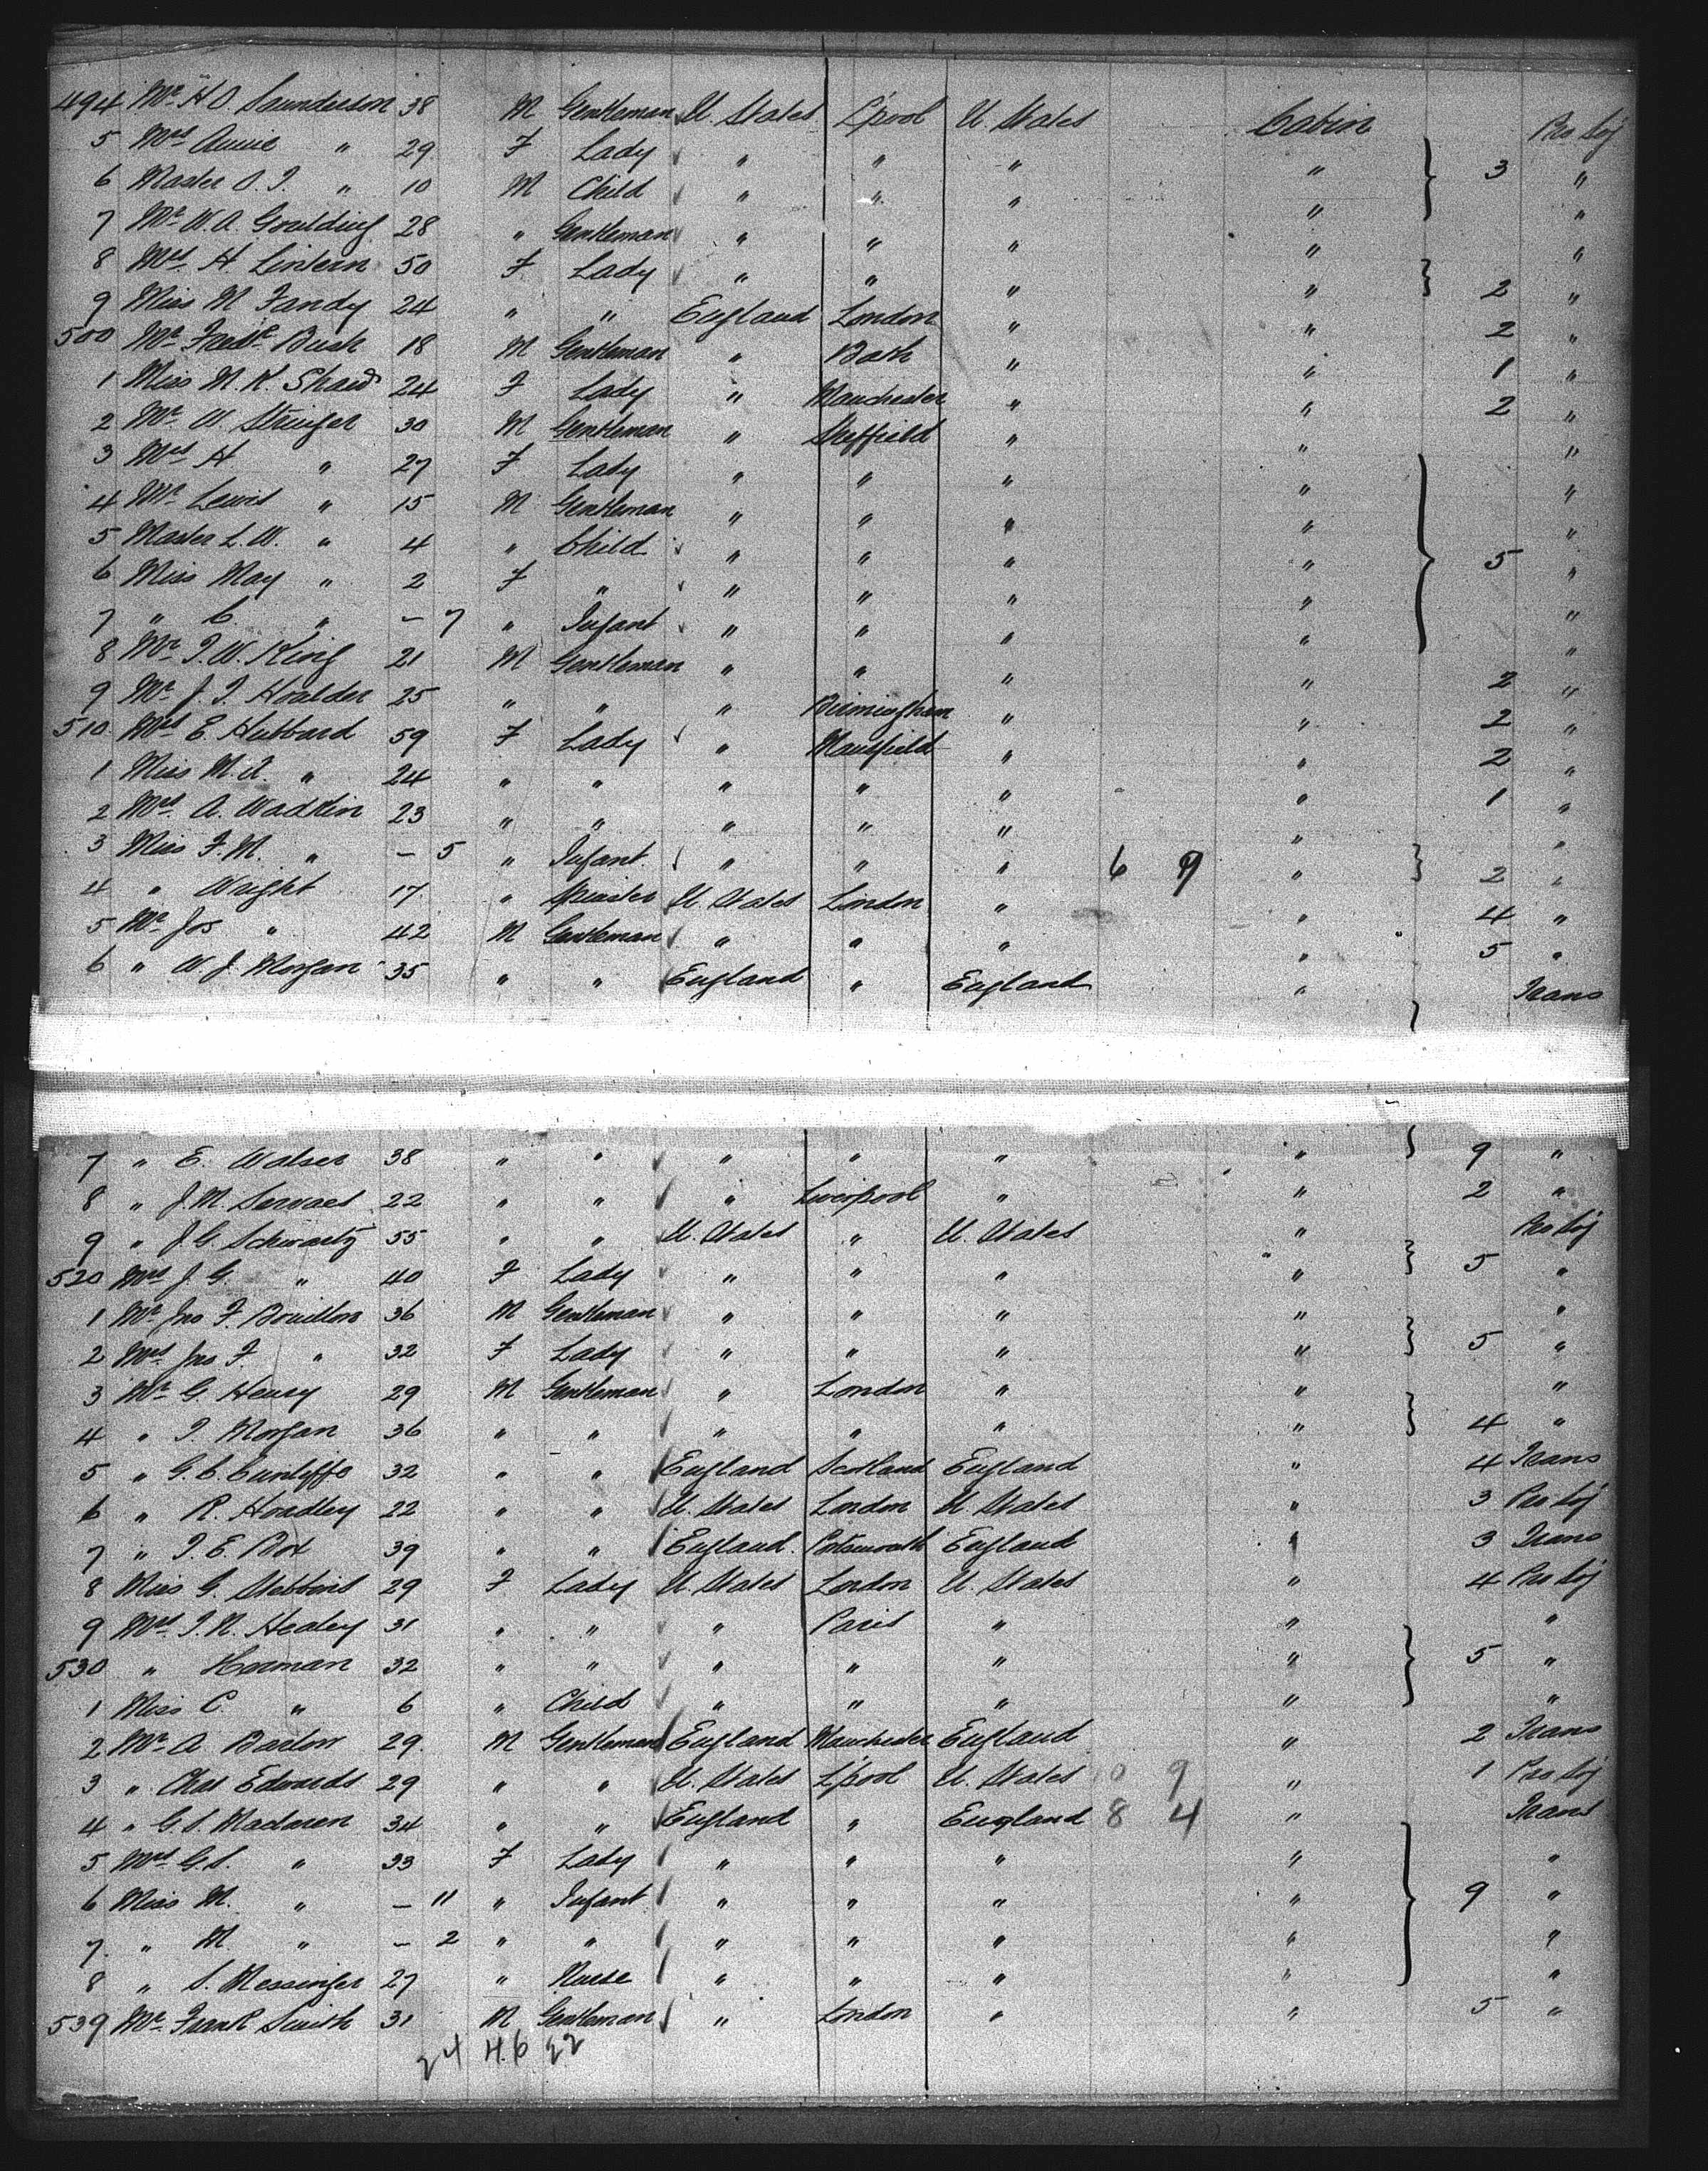 494 Mr H O. Saunderson 38 M Gentleman U. States L'pool U States Cabin Pro Soj
5 Mrs Annie " 29 F Lady " " " " 3 "
6 Master O. T. " 10 M Child " " " " "
7 Mr W. A. Goulding 28 " Gentleman " " " " "
8 Mrs H. Lintern 50 F Lady " " " " 2 "
9 Miss M Fandy 24 " " England London " " 2 "
500 Mr Fredk Bush 18 M Gentleman " Bath " " 1 "
1 Miss M. K. Shaw 24 F Lady " Manchester " " 2 "
2 Mr W. Stringer 30 M Gentleman " Sheffield " " "
3 Mrs H " 27 F Lady " " " " "
4 Mr Lewis " 15 M Gentleman " " " " "
5 Master L. W. " 4 " Child " " " " 5 "
6 Miss May " 2 F " " " " " "
7 " C " – 7 " Infant " " " " "
8 Mr T. W. King 21 M Gentleman " " " " 2 "
9 Mr J. T. Hoalder 25 " " " Birmingham " " 2 "
510 Mrs E. Hubbard 59 F Lady " Mansfield " " 2 "
1 Miss M. A. " 24 " " " " " " 1 "
2 Mrs A. Wadkin 23 " " " " " " "
3 Miss F. M. " – 5 " Infant " " " 6 9 " 2 "
4 " Wright 17 " Spinster U. States London " " 4 "
5 Mr Jos " 42 M Gentleman " " " " 5 "
6 " W J. Morgan 35 " " England " England " Trans
7 " E. Walser 38 " " " " " " 9 "
8 " J. M. Servaes 22 " " " Liverpool " " 2 "
9 " J. G. Schwartz 55 " " U. States " U. States " Pro Soj
520 Mrs J. G. " 40 F Lady " " " " 5 "
1 Mr Jno F. Bouillon 36 M Gentleman " " " " "
2 Mrs Jno F. " 32 F Lady " " " " 5 "
3 Mr G. Henry 29 M Gentleman " London " " "
4 " T. Morgan 36 " " " " " " 4 "
5 " G. C. Cunliffe 32 " " England Scotland England " 4 Trans
6 " R. Hoadley 22 " " U. States London U States " 3 Pro Soj
7 " T. E. Box 39 " " England Portsmouth England " 3 Trans
8 Miss G. Stebbins 29 F Lady U. States London U. States " 4 Pro Soj
9 Mrs T. N. Healey 31 " " " Paris " " "
530 " Horman 32 " " " " " " 5 "
1 Miss C. " 6 " Child " " " " "
2 Mr A Barlow 29 M Gentleman England Manchester England " 2 Trans
3 " Chas Edwards 29 " " U. States L'pool U. States 10 9 " 1 Pro Soj
4 " G. S. Maclaren 34 " " England " England 8 4 " Trans
5 Mrs G. S. " 33 F Lady " " " " "
6 Miss M. " – 11 " Infant " " " " 9 "
7 " M " – 2 " " " " " " "
8 " S. Messinger 27 " Nurse " " " " "
539 Mr Frank Smith 31 M Gentleman " London " " 5 "
24 46 22